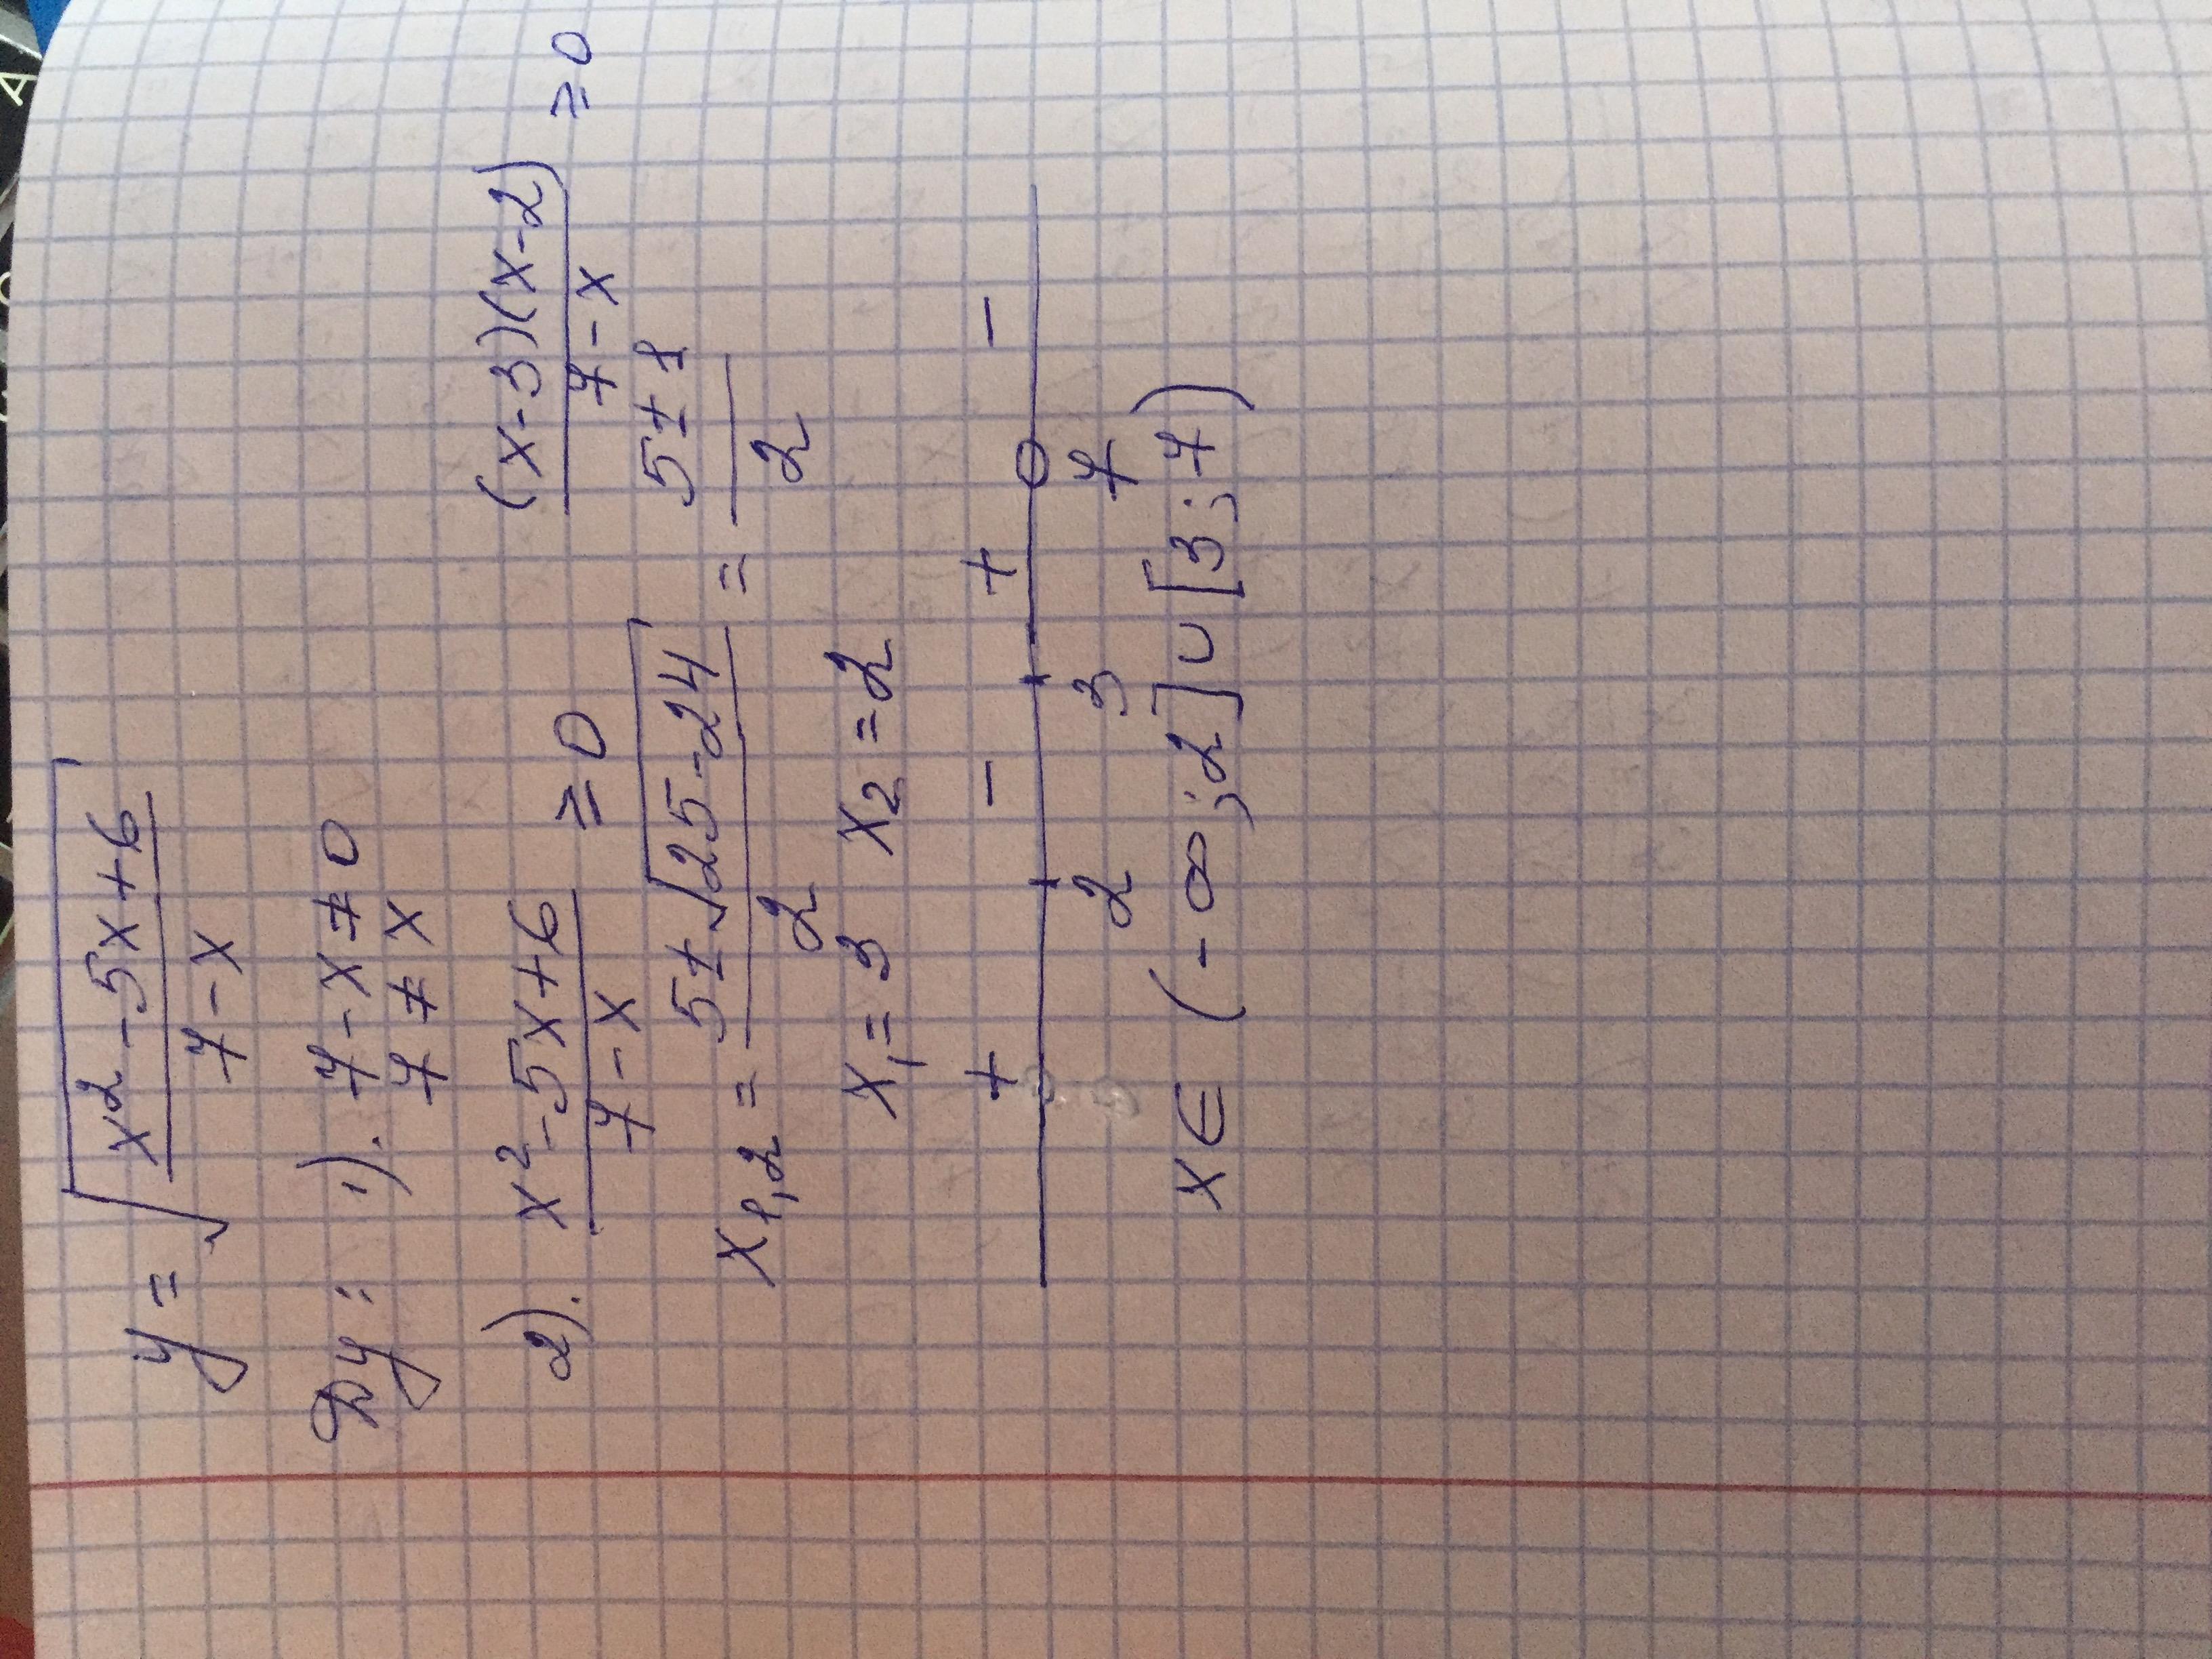 y = √((x² - 5x + 6)/(7 - x))
Dy: 1). 7 - x ≠ 0
7 ≠ x
2). (x² - 5x + 6)/(7 - x) ≥ 0 ((x-3)(x-2))/(7 - x) ≥ 0
x₁,₂ = (5 ± √(25-24))/2 = (5 ± 1)/2
x₁ = 3 x₂ = 2
+ - + -
2 3 7
x ∈ (-∞; 2] ∪ [3; 7)